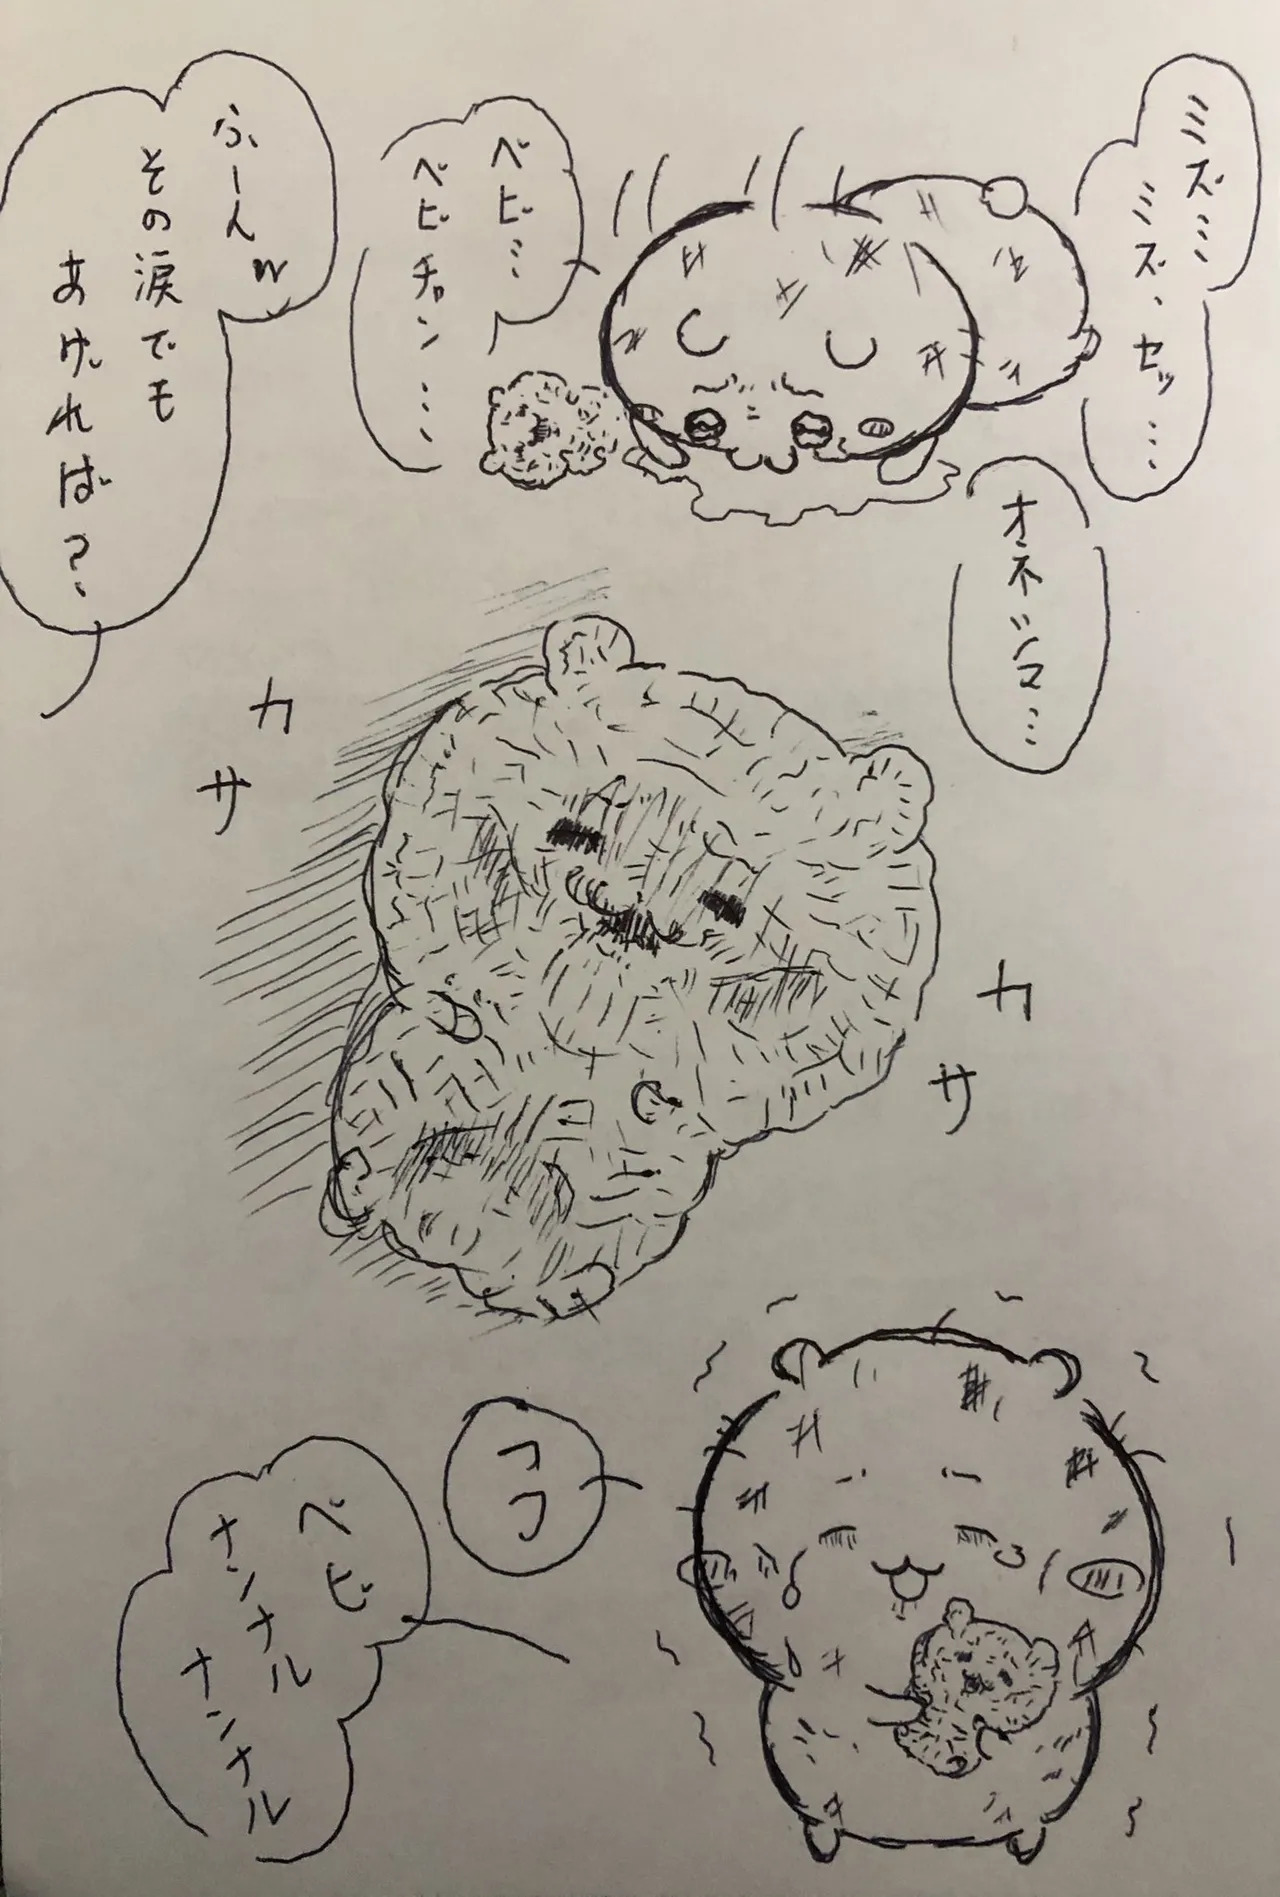 ミズ…
ミズ、セッ…
オネシマ…
ベビ…
ベビチャン…
ふーんw
その涙でも
あければ?
カサ
カサ
ココ
ベビ
ナンナル
ナンナル